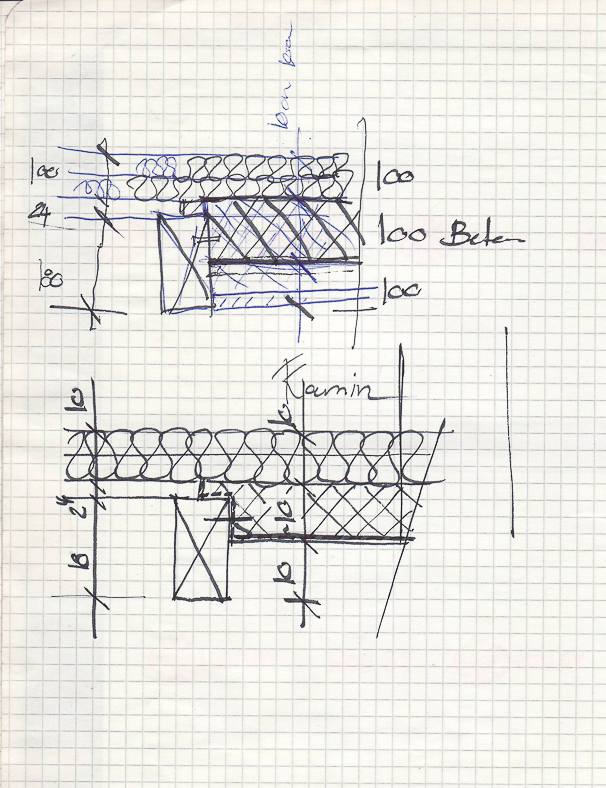 100
24
180
100
100 Beton
100
Kamin
10
24
18
10
10
10